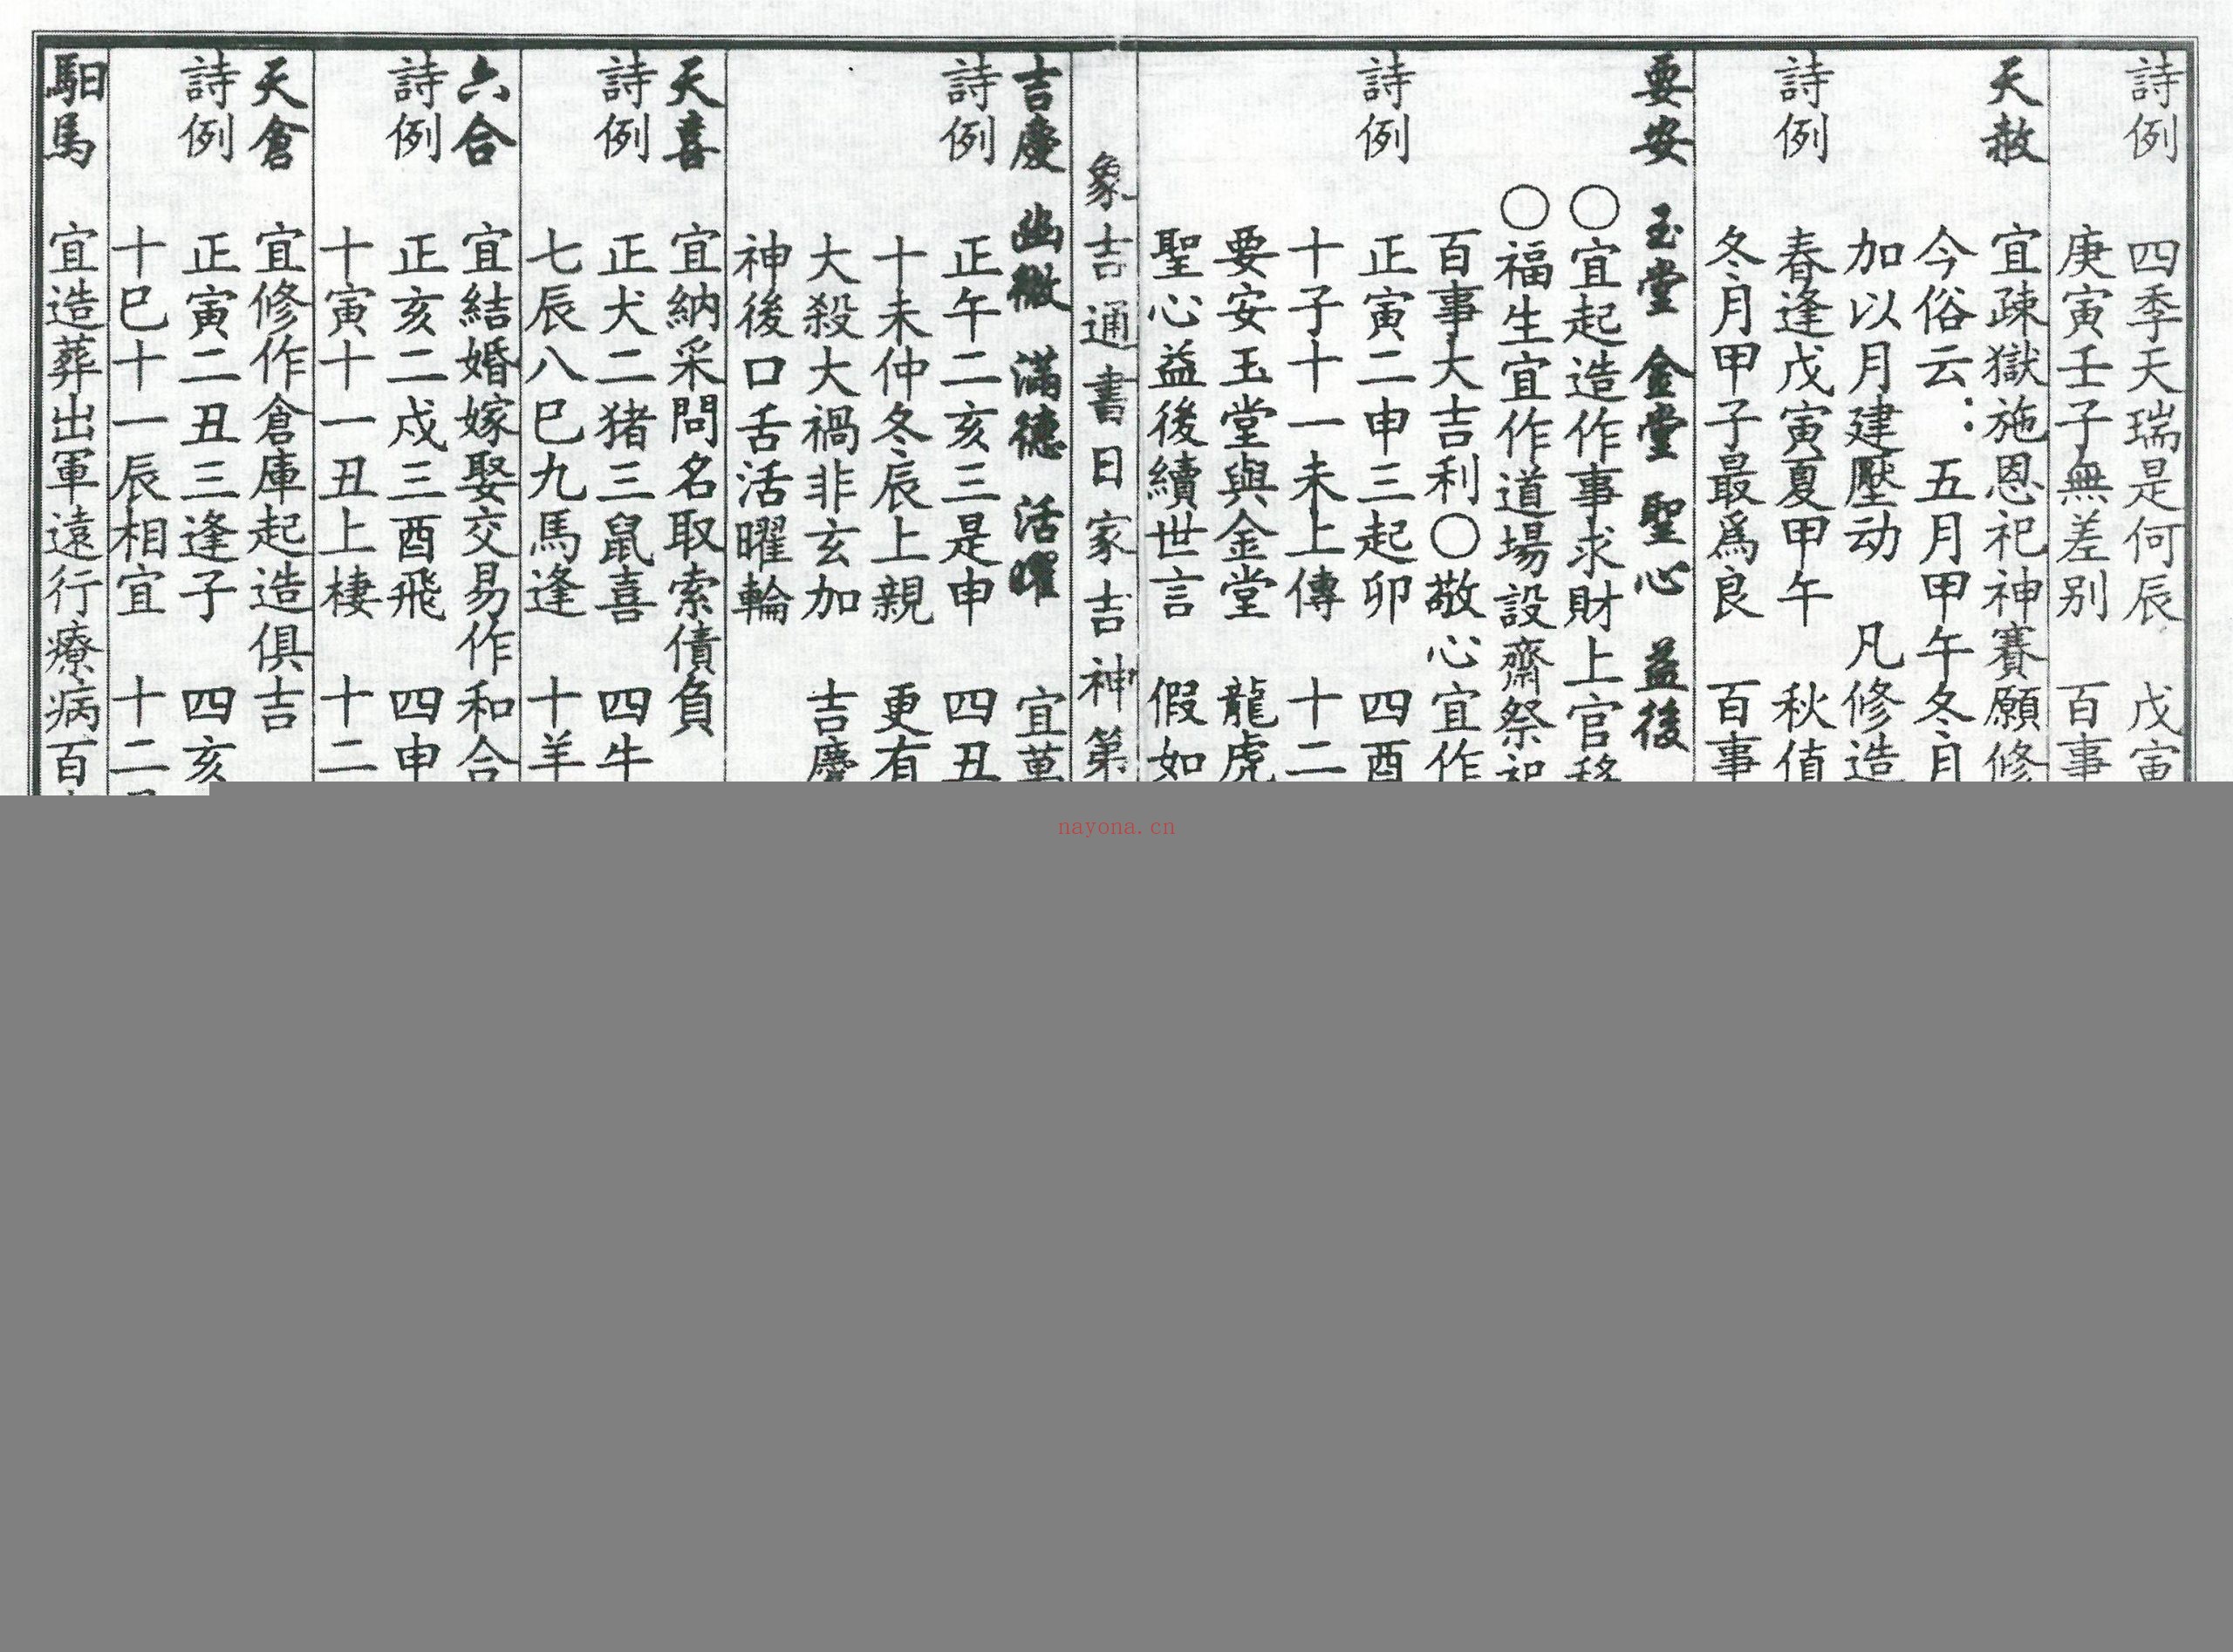 詩例 四季天瑞是何辰 戊寅
庚寅壬子無差別 百事
天赦 宜疎獄施恩祀神賽願修
今俗云：五月甲午冬月
加以月建壓动 凡修造
詩例 春逢戊寅夏甲午 秋值
冬月甲子最爲良 百事
要安 玉堂 金堂 聖心 益後
○宜起造作事求財上官移
○福生宜作道場設齋祭祀
百事大吉利○敬心宜作
詩例 正寅二申三起卯 四酉
十子十一未上傳 十二
要安玉堂與金堂 龍虎
聖心益後續世言 假如
象吉通書日家吉神第
吉慶 幽微 滿德 活曜 宜萬
詩例 正午二亥三是申 四丑
十未仲冬辰上親 更有
大殺大禍非玄加 吉慶
神後口舌活曜輪
天喜 宜納采問名取索債負
詩例 正犬二猪三鼠喜 四牛
七辰八巳九馬逢 十羊
六合 宜結婚嫁娶交易作和合
詩例 正亥二戌三酉飛 四申
十寅十一丑上棲 十二
天倉 宜修作倉庫起造俱吉
詩例 正寅二丑三逢子 四亥
十巳十一辰相宜 十二
馹馬 宜造葬出軍遠行療病百
nayona.cn